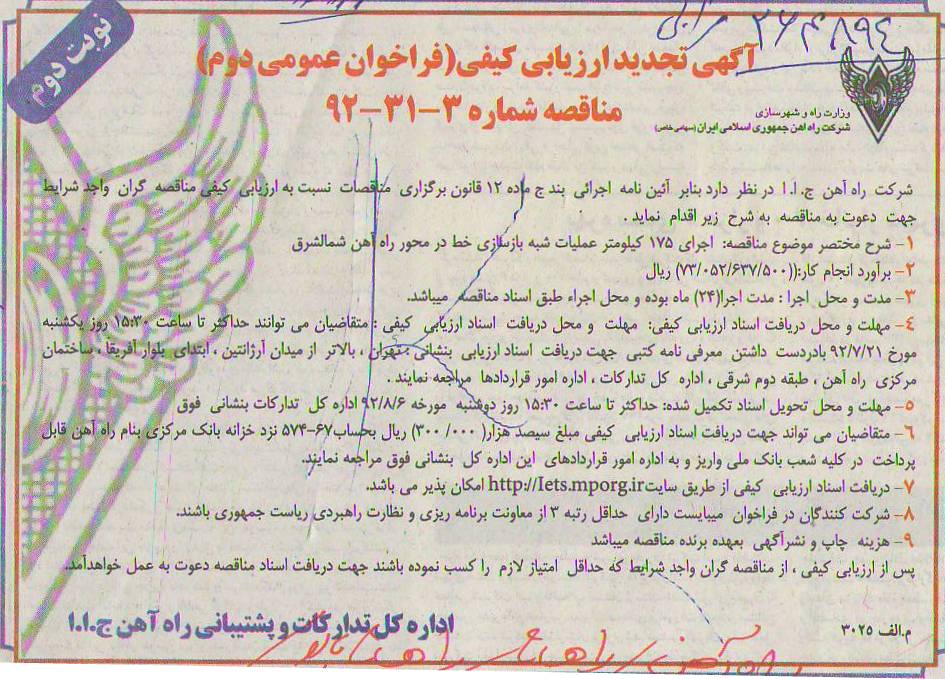 ۲۶۴۸۹۴
نوبت دوم
آگهی تجدید ارزیابی کیفی(فراخوان عمومی دوم)
مناقصه شماره ۳-۳۱-۹۲
وزارت راه و شهرسازی
شرکت راه آهن جمهوری اسلامی ایران (سهامی خاص)
شرکت راه آهن ج.ا.ا در نظر دارد بنابر آئین نامه اجرائی بند ج ماده ۱۲ قانون برگزاری مناقصات نسبت به ارزیابی کیفی مناقصه گران واجد شرایط
جهت دعوت به مناقصه به شرح زیر اقدام نماید .
۱- شرح مختصر موضوع مناقصه: اجرای ۱۷۵ کیلومتر عملیات شبه بازسازی خط در محور راه آهن شمالشرق
۲- برآورد انجام کار:((۷۳/۰۵۲/۶۳۷/۵۰۰) ریال
۳- مدت و محل اجرا : مدت اجرا(۲۴) ماه بوده و محل اجراء طبق اسناد مناقصه میباشد.
۴- مهلت و محل دریافت اسناد ارزیابی کیفی: مهلت و محل دریافت اسناد ارزیابی کیفی : متقاضیان می توانند حداکثر تا ساعت ۱۵:۳۰ روز یکشنبه
مورخ ۹۲/۷/۲۱ بادردست داشتن معرفی نامه کتبی جهت دریافت اسناد ارزیابی بنشانی : تهران ، بالاتر از میدان ارژانتین ، ابتدای بلوار آفریقا ، ساختمان
مرکزی راه آهن ، طبقه دوم شرقی ، اداره کل تدارکات ، اداره امور قراردادها مراجعه نمایند .
۵- مهلت و محل تحویل اسناد تکمیل شده: حداکثر تا ساعت ۱۵:۳۰ روز دوشنبه مورخه ۹۲/۸/۶ اداره کل تدارکات بنشانی فوق
۶- متقاضیان می تواند جهت دریافت اسناد ارزیابی کیفی مبلغ سیصد هزار( ۳۰۰/ ۰۰۰) ریال بحساب۶۷-۵۷۴ نزد خزانه بانک مرکزی بنام راه آهن قابل
پرداخت در کلیه شعب بانک ملی واریز و به اداره امور قراردادهای این اداره کل بنشانی فوق مراجعه نمایند.
۷- دریافت اسناد ارزیابی کیفی از طریق سایتhttp://Iets.mporg.ir امکان پذیر می باشد.
۸- شرکت کنندگان در فراخوان میبایست دارای حداقل رتبه ۳ از معاونت برنامه ریزی و نظارت راهبردی ریاست جمهوری باشند.
۹- هزینه چاپ و نشرآگهی بعهده برنده مناقصه میباشد
پس از ارزیابی کیفی ، از مناقصه گران واجد شرایط که حداقل امتیاز لازم را کسب نموده باشند جهت دریافت اسناد مناقصه دعوت به عمل خواهدآمد.
م.الف ۳۰۲۵
اداره کل تدارکات و پشتیبانی راه آهن ج.ا.ا